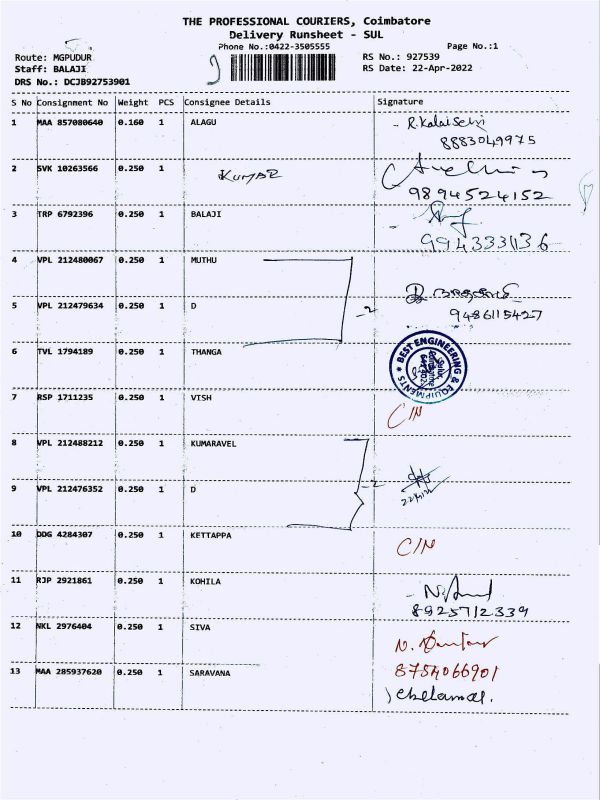 THE PROFESSIONAL COURIERS, Coimbatore
Delivery Runsheet - SUL
Phone No.:0422-3505555
Page No.:1
Route: MGPUDUR
RS No.: 927539
Staff: BALAJI
RS Date: 22-Apr-2022
DRS No.: DCJB92753901
S No Consignment No Weight PCS Consignee Details Signature
1 MAA 857080640 0.160 1 ALAGU R.Kalaiselvi
8883049975
2 SVK 10263566 0.250 1 KUMAR
9894524152
3 TRP 6792396 0.250 1 BALAJI
9943331136
4 VPL 212480067 0.250 1 MUTHU
5 VPL 212479634 0.250 1 D -2
9486115427
6 TVL 1794189 0.250 1 THANGA
BEST ENGINEERING & EQUIPMENTS
7 RSP 1711235 0.250 1 VISH C/N
8 VPL 212488212 0.250 1 KUMARAVEL
9 VPL 212476352 0.250 1 D -2
10 DDG 4284307 0.250 1 KETTAPPA C/N
11 RJP 2921861 0.250 1 KOHILA
8925712339
12 NKL 2976404 0.250 1 SIVA
13 MAA 285937620 0.250 1 SARAVANA 8754066901